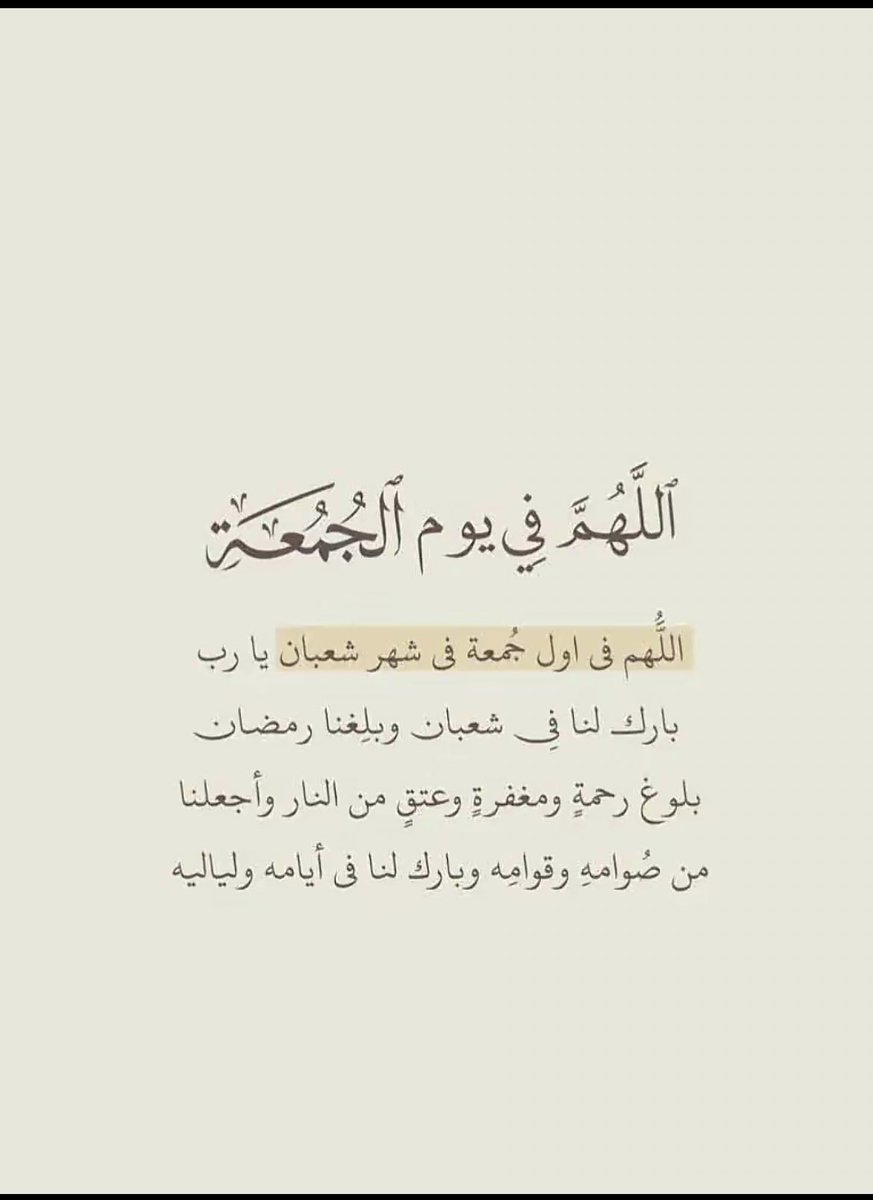 ٱللَّهُمَّ فِي يوم ٱلجُمُعَةِ
اللَّهُم فى اول جُمعة فى شهر شعبان يا رب
بارك لنا فِي شعبان وبلِغنا رمضان
بلوغ رحمةٍ ومغفرةٍ وعتقٍ من النار وأجعلنا
من صُوامهِ وقوامِه وبارك لنا فى أيامه ولياليه